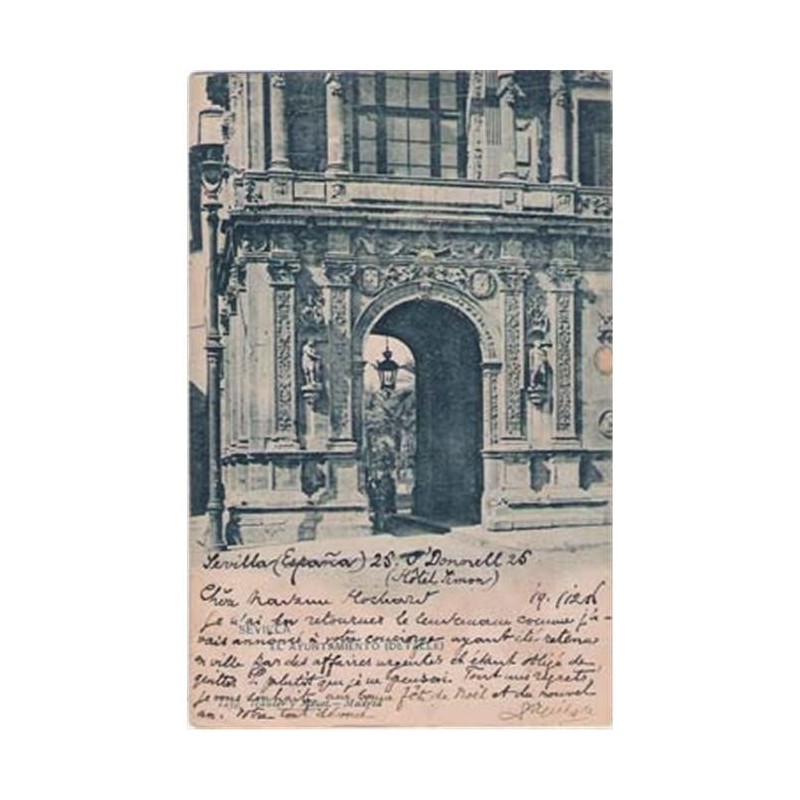 Sevilla (España) 25. O'Donorell 25
(Hôtel Simon)
Chère Madame Hochard 19.
Je n'ai pu retourner le lendemain comme j'a-
vais annoncé à votre concierge ayant été retenu
SEVILLA
EL AYUNTAMIENTO (DETALLE)
en ville par des affaires urgentes et étant obligé de
quitter plutôt que je ne pensais. Tout mes regrets,
je vous souhaite une bonne fête de Noël et du nouvel
Hauser y Menet.—Madrid
an. Votre tout dévoué